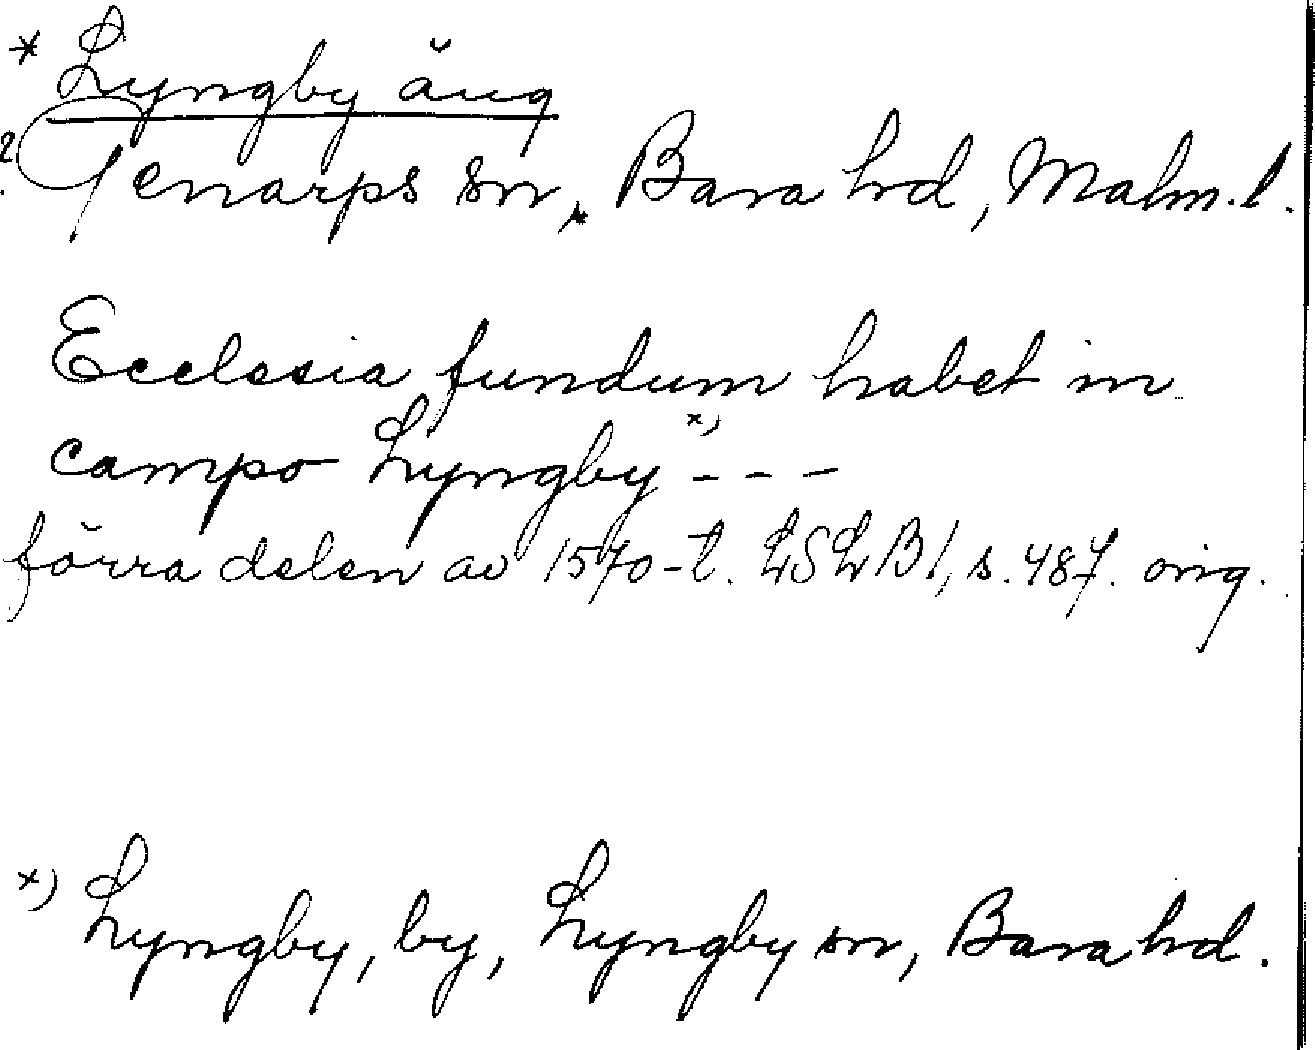 * Lyngby äng
? Genarps sn, Bara hd, Malm. l.
Ecclesia fundum habet in
campo Lyngby x) - - -
förra delen av 1570-t. LSLB 1, s. 487. orig.
x) Lyngby, by, Lyngby sn, Bara hd.